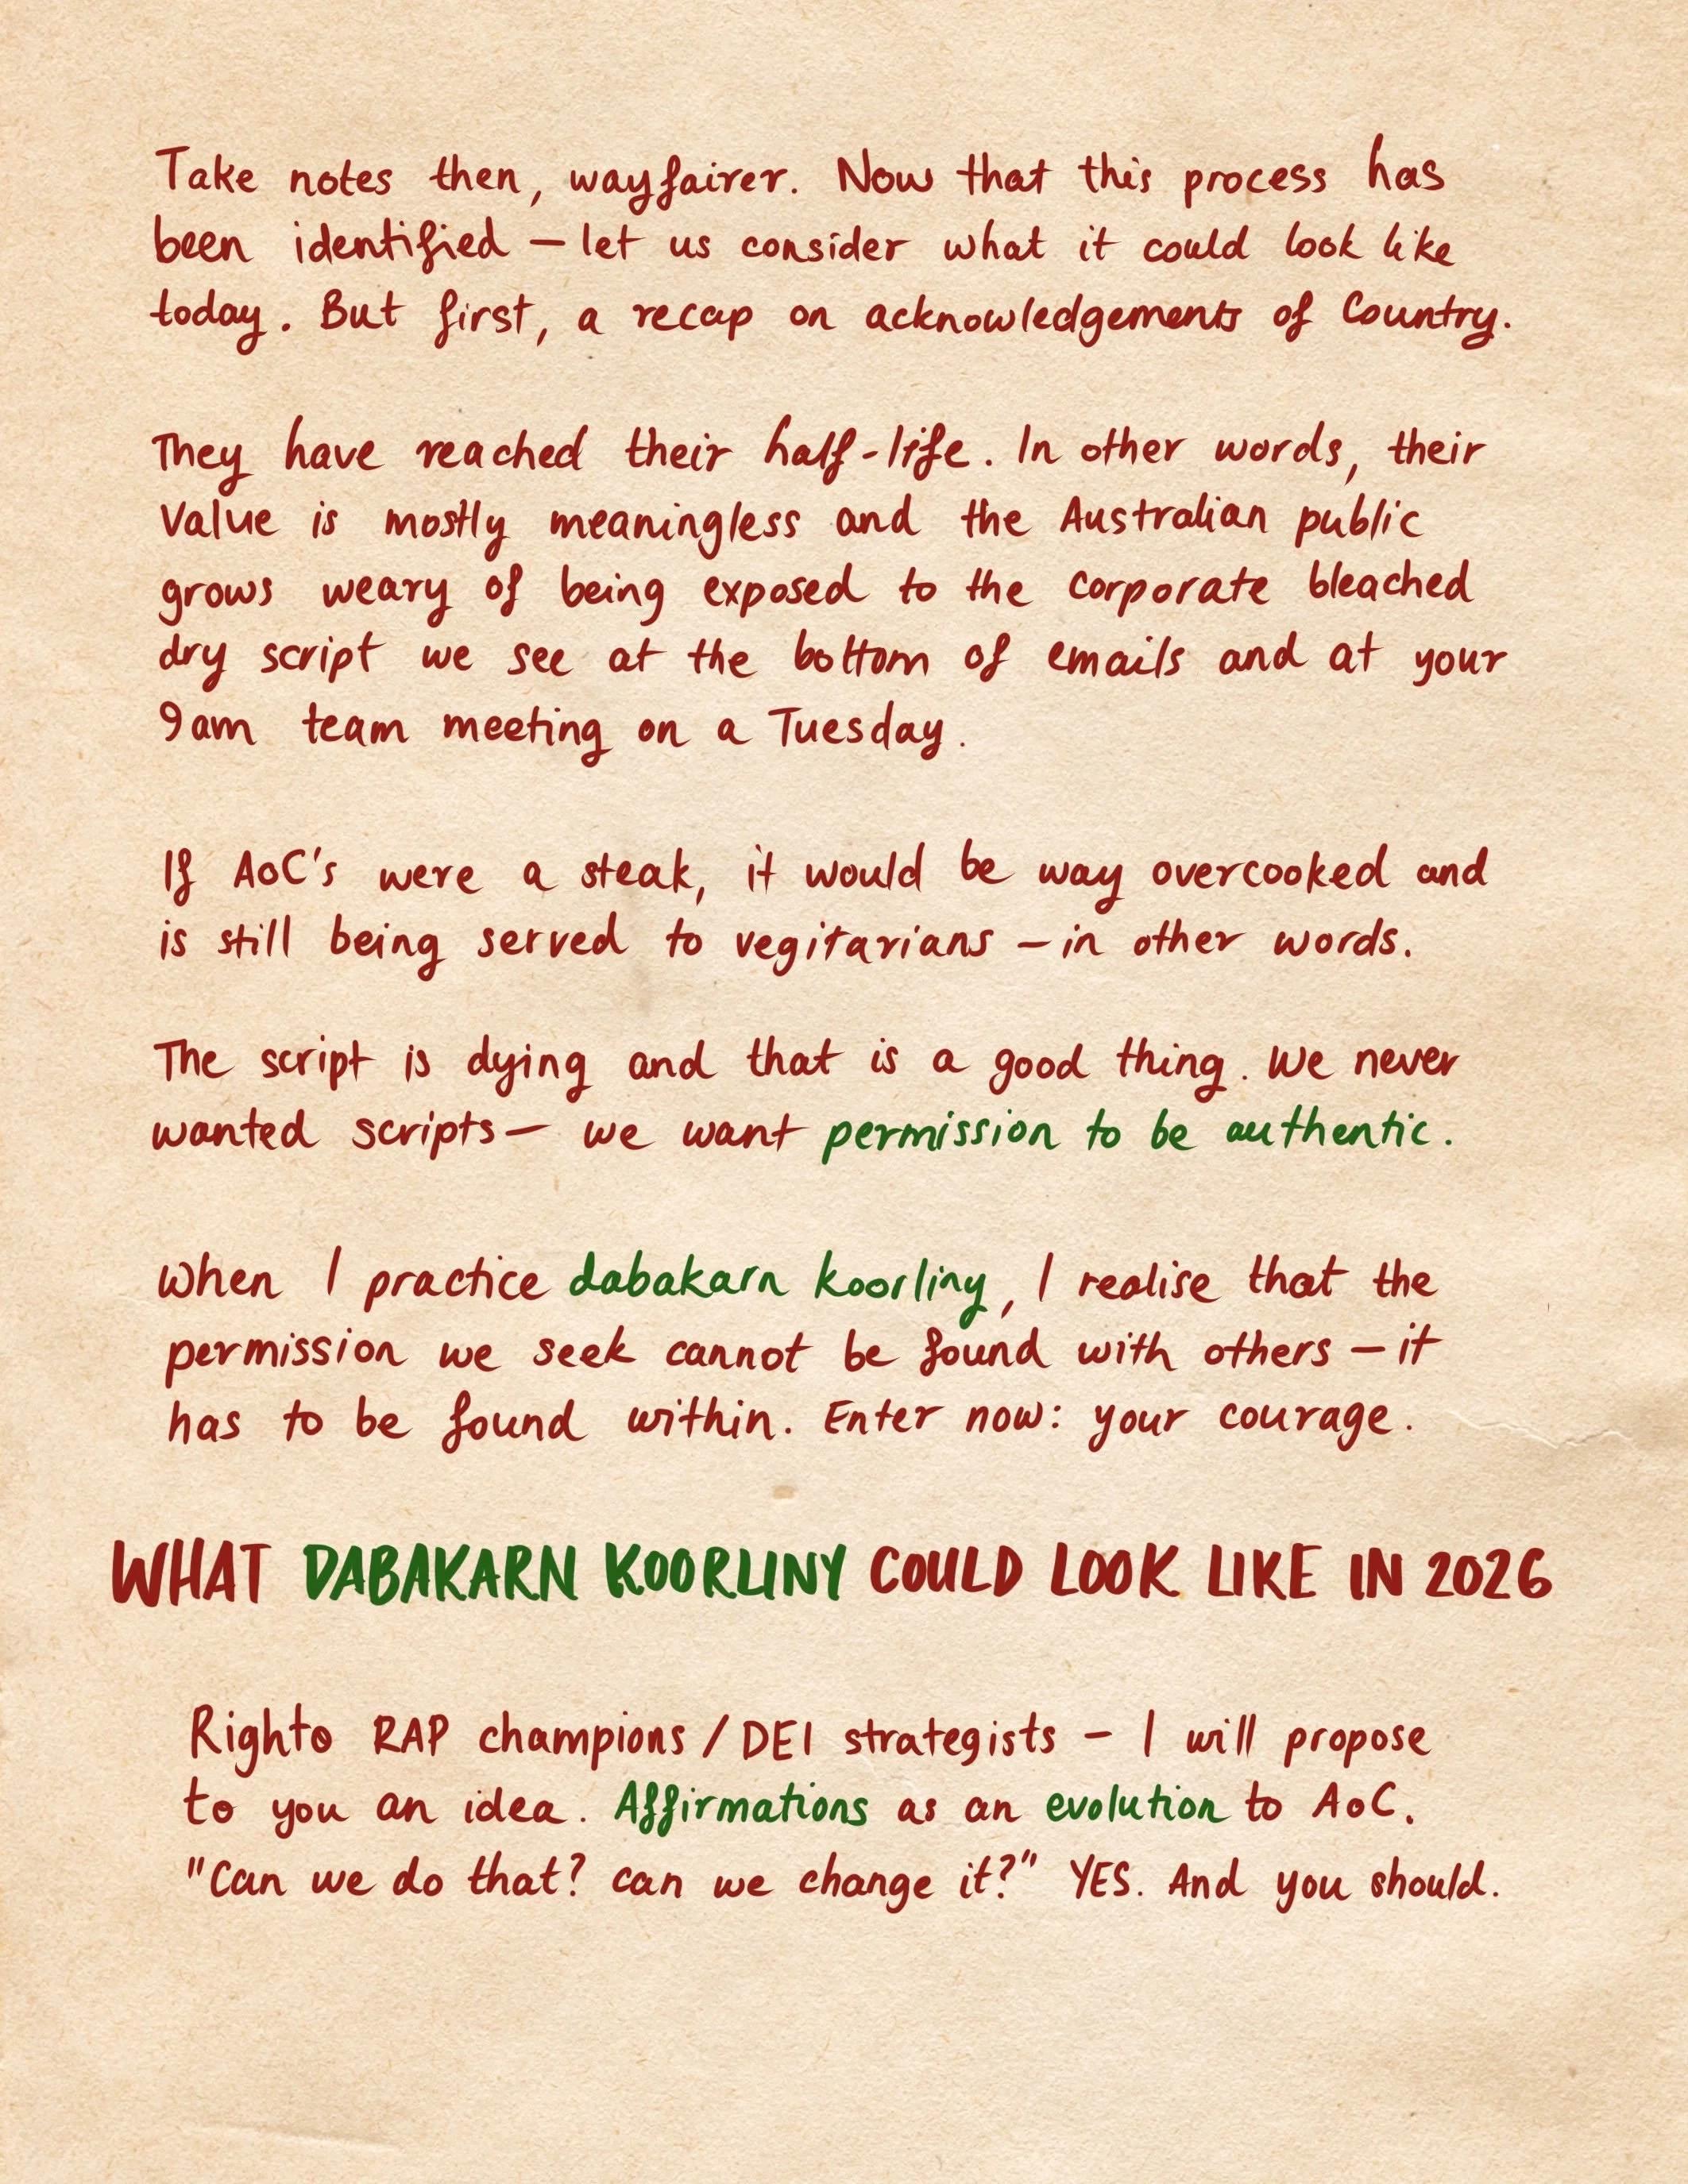 Take notes then, wayfairer. Now that this process has
been identified – let us consider what it could look like
today. But first, a recap on acknowledgements of Country.
They have reached their half-life. In other words, their
value is mostly meaningless and the Australian public
grows weary of being exposed to the corporate bleached
dry script we see at the bottom of emails and at your
9am team meeting on a Tuesday.
If AoC's were a steak, it would be way overcooked and
is still being served to vegitarians – in other words.
The script is dying and that is a good thing. We never
wanted scripts – we want permission to be authentic.
When I practice dabakarn koorliny, I realise that the
permission we seek cannot be found with others – it
has to be found within. Enter now: your courage.
WHAT DABAKARN KOORLINY COULD LOOK LIKE IN 2026
Righto RAP champions / DEI strategists – I will propose
to you an idea. Affirmations as an evolution to AoC.
"Can we do that? can we change it?" YES. And you should.